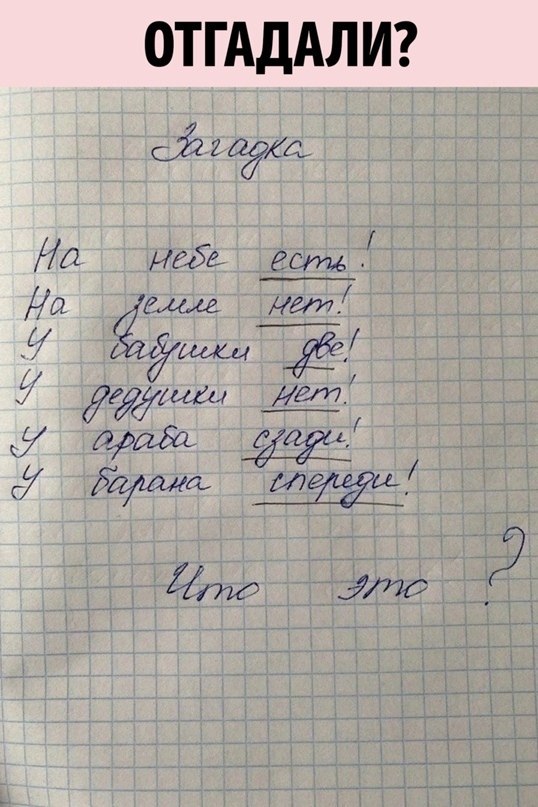 ОТГАДАЛИ?
Загадка
На небе есть!
На земле нет!
У бабушки две!
У дедушки нет!
У араба сзади!
У барана спереди!
Что это ?